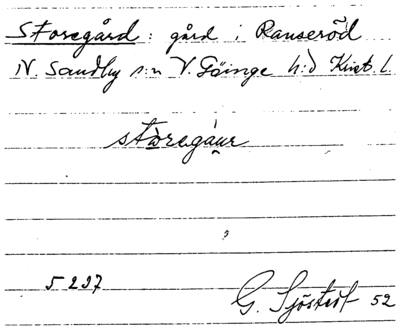 Storegård: gård i Ranseröd
N. Sandby s:n V. Göinge h:d Krist. L.
stòregàur
5 237
G. Sjöstedt 52